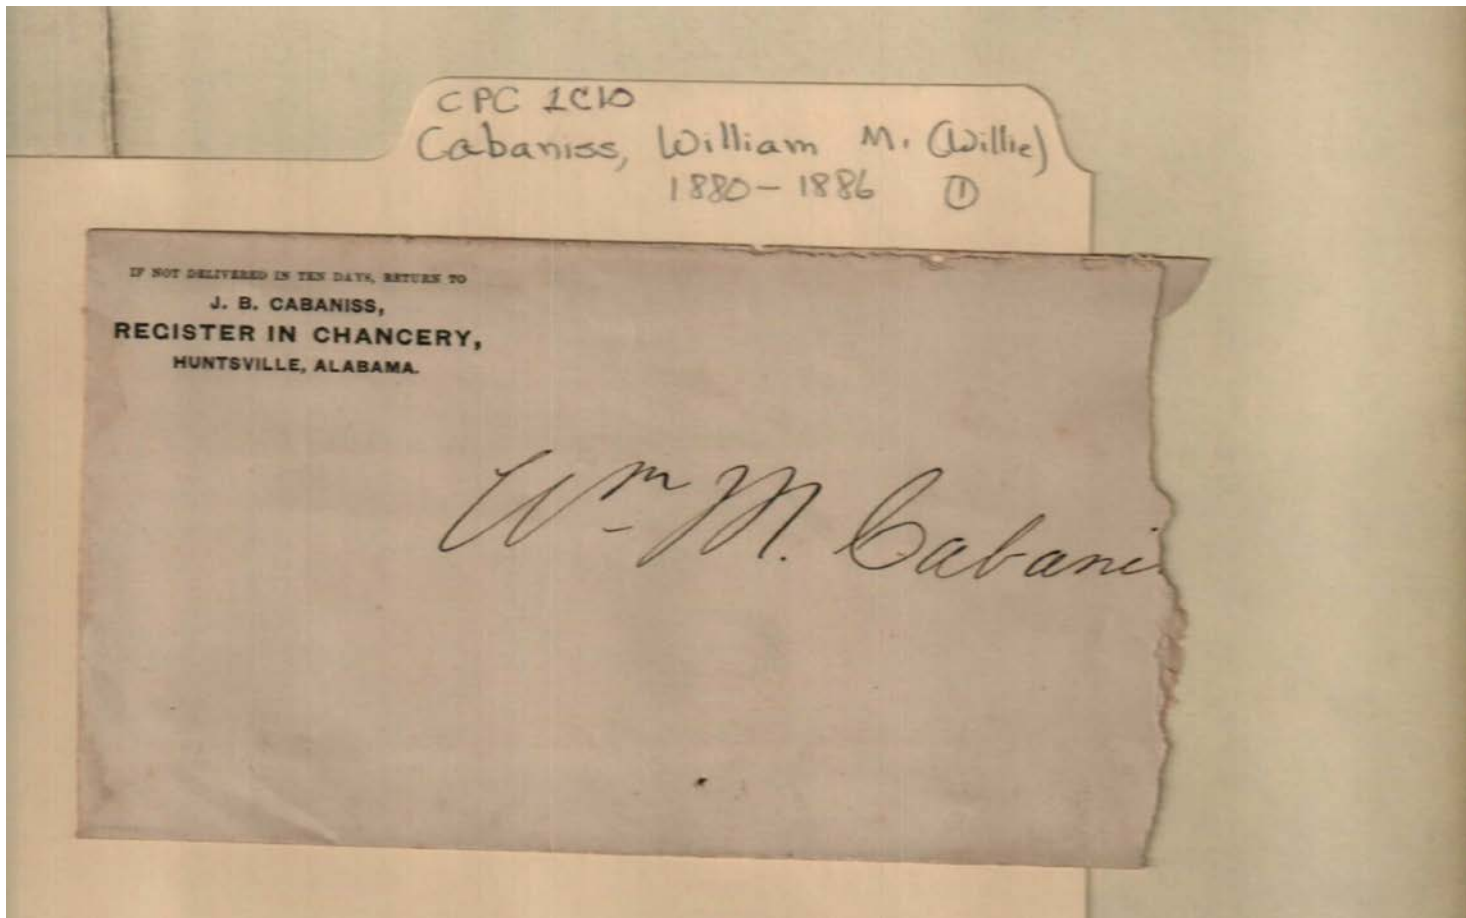 CPC 1C10
Cabaniss, William M. (Willie)
1880-1886 ①
IF NOT DELIVERED IN TEN DAYS, RETURN TO
J. B. CABANISS,
REGISTER IN CHANCERY,
HUNTSVILLE, ALABAMA.
Wm M. Cabani